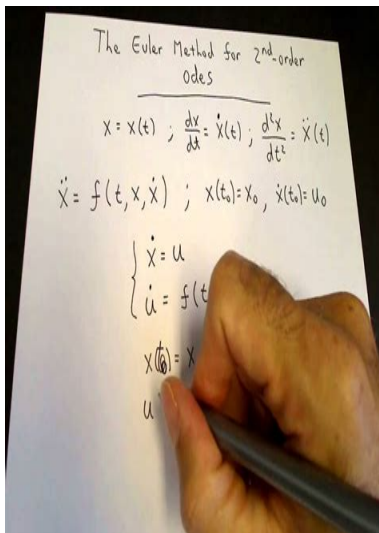 The Euler Method for 2nd-order
Odes
x = x(t) ; dx/dt = ẋ(t) ; d²x/dt² = ẍ(t)
ẍ = f(t, x, ẋ) ; x(t₀) = x₀ , ẋ(t₀) = u₀
ẋ = u
u̇ = f(t
x( ) = x
u